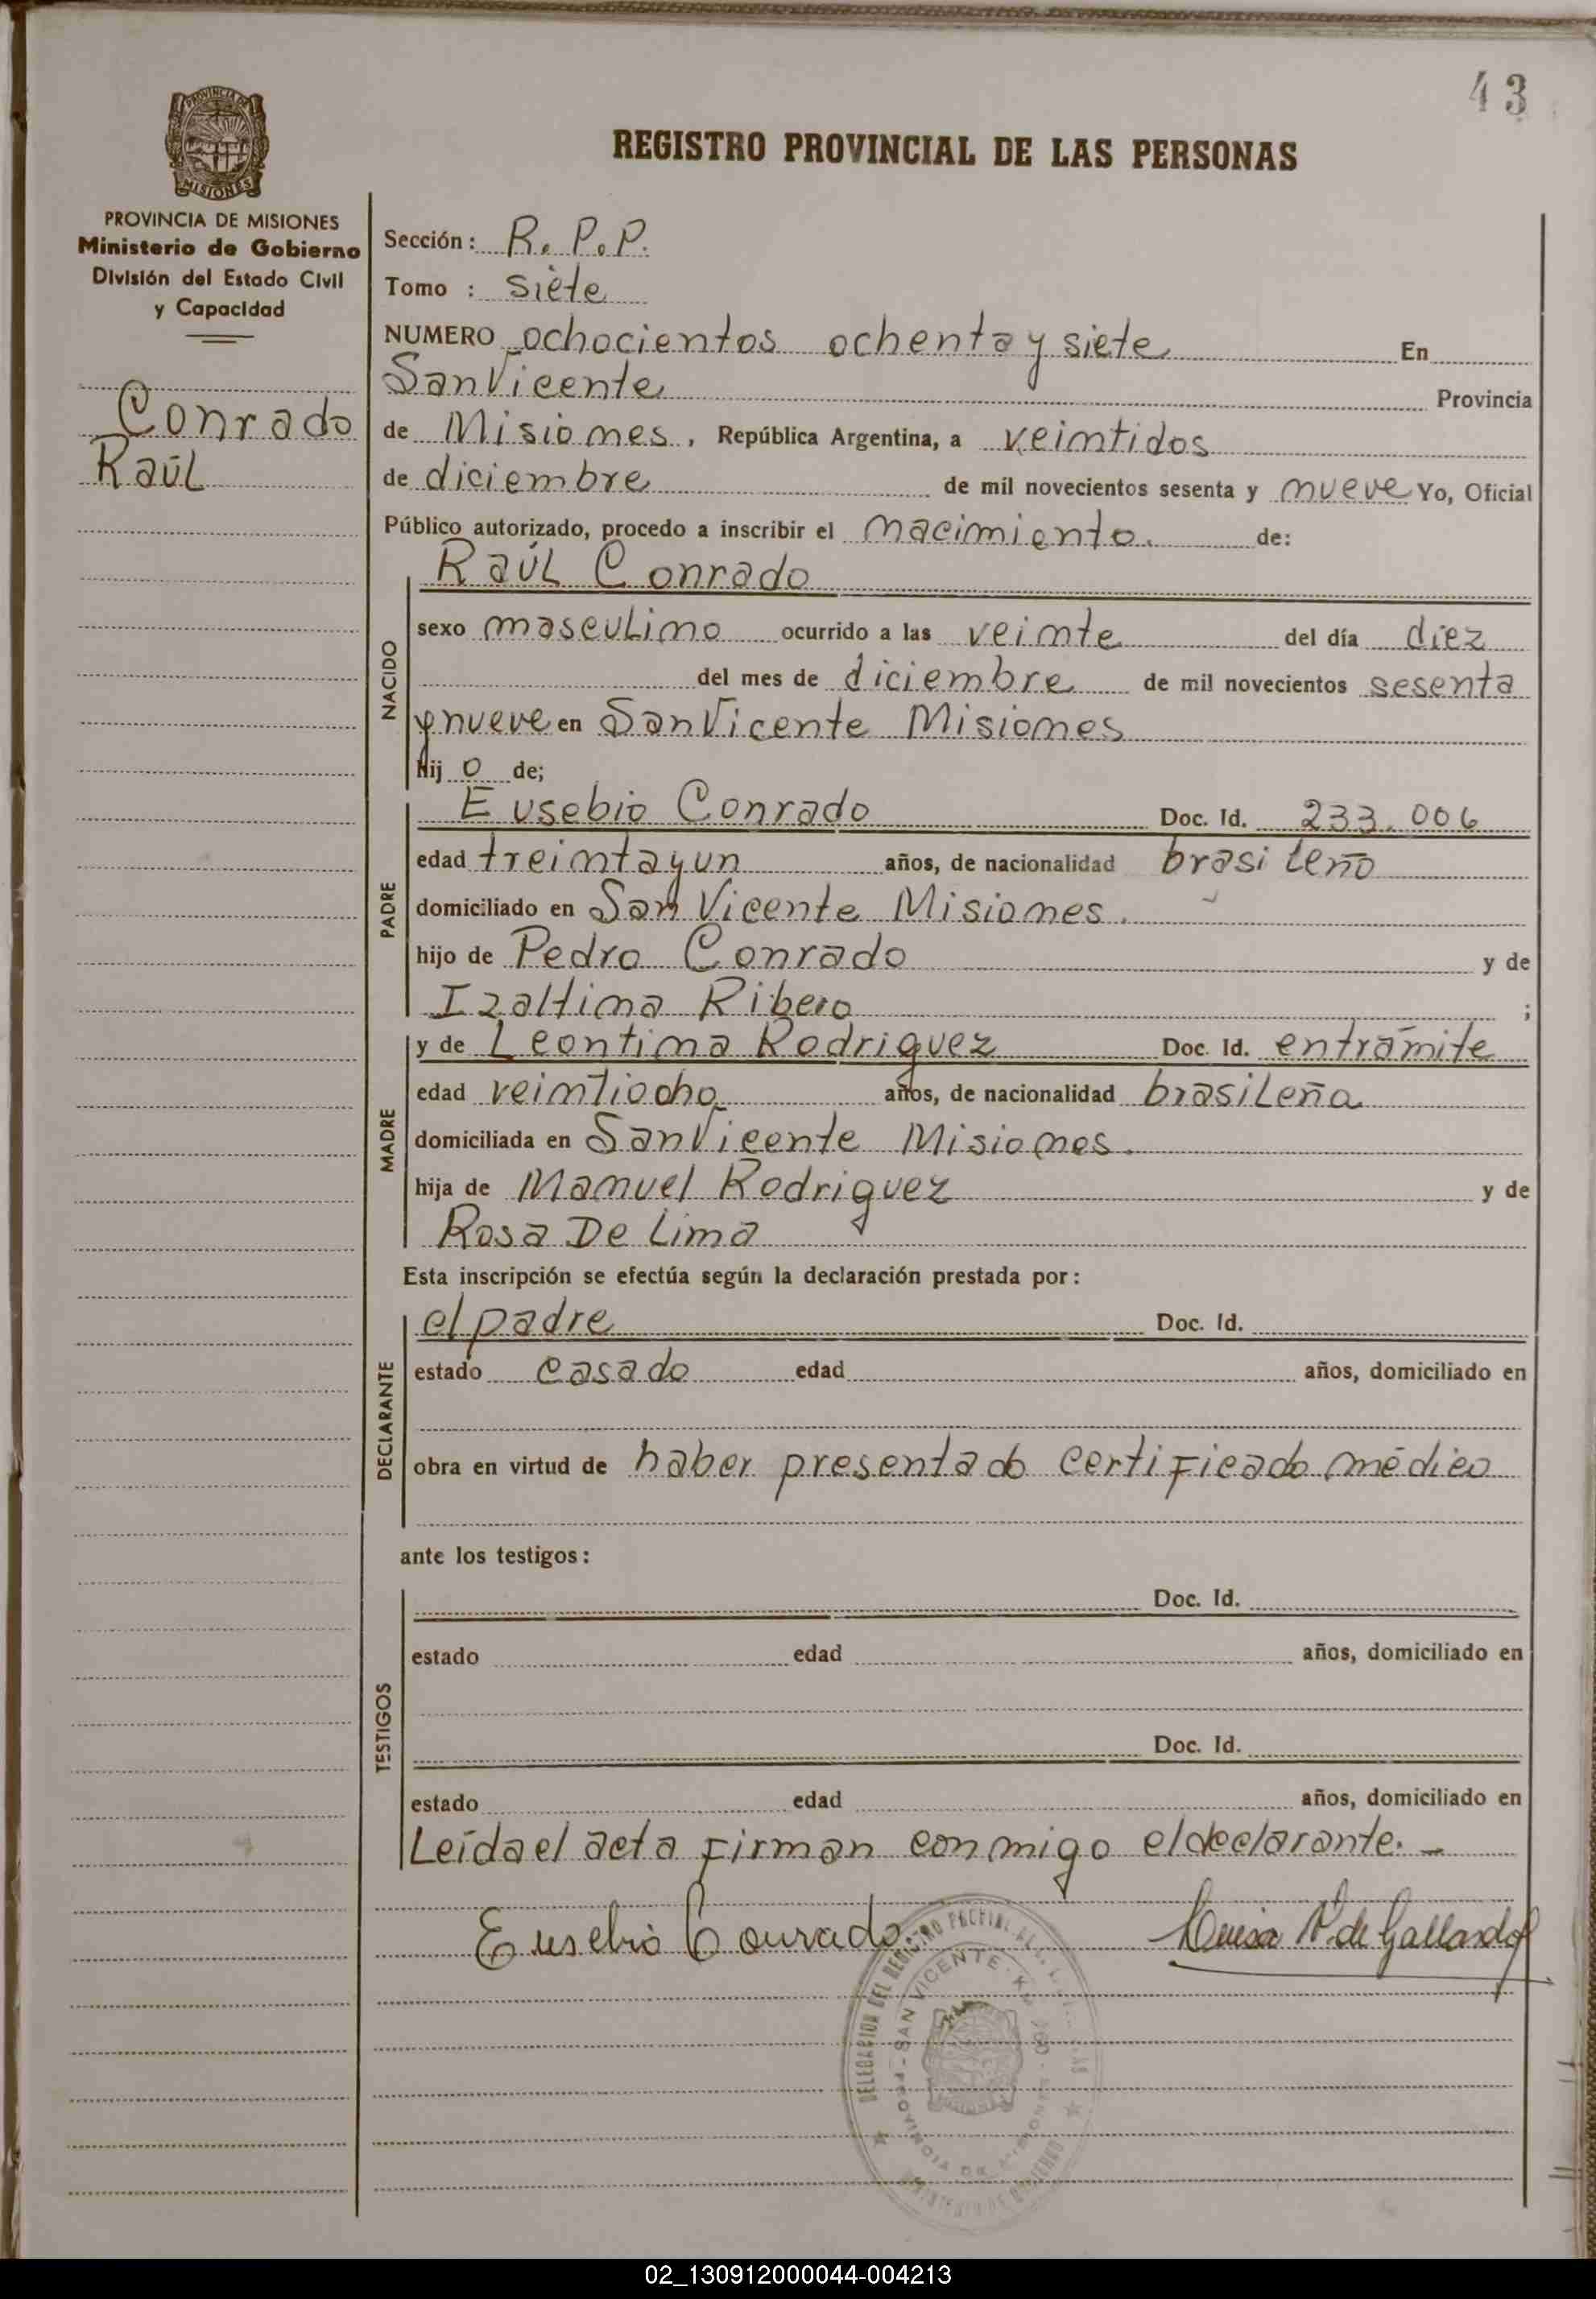 43
PROVINCIA DE MISIONES
REGISTRO PROVINCIAL DE LAS PERSONAS
PROVINCIA DE MISIONES
Ministerio de Gobierno
División del Estado Civil
y Capacidad
Conrado
Raúl
Sección: R. P. P.
Tomo : siete
NUMERO ochocientos ochenta y siete En
San Vicente Provincia
de Misiones, República Argentina, a veintidos
de diciembre de mil novecientos sesenta y nueve Yo, Oficial
Público autorizado, procedo a inscribir el nacimiento. de:
Raúl Conrado
NACIDO
sexo masculino ocurrido a las veinte del día diez
del mes de diciembre de mil novecientos sesenta
y nueve en San Vicente Misiones
hij o de;
PADRE
Eusebio Conrado Doc. Id. 233.006
edad treinta y un años, de nacionalidad brasileño
domiciliado en San Vicente Misiones.
hijo de Pedro Conrado y de
Izaltina Ribero ;
MADRE
y de Leontina Rodriguez Doc. Id. en trámite
edad veintiocho años, de nacionalidad brasileña
domiciliada en San Vicente Misiones.
hija de Manuel Rodriguez y de
Rosa De Lima
Esta inscripción se efectúa según la declaración prestada por:
DECLARANTE
el padre Doc. Id.
estado casado edad años, domiciliado en
obra en virtud de haber presentado certificado médico
ante los testigos:
TESTIGOS
Doc. Id.
estado edad años, domiciliado en
Doc. Id.
estado edad años, domiciliado en
Leída el acta firman conmigo el declarante. -
Eusebio Conrado Luisa de Gallardo
DELEGACION DEL REGISTRO
SAN VICENTE
PROVINCIA DE MISIONES
02_130912000044-004213